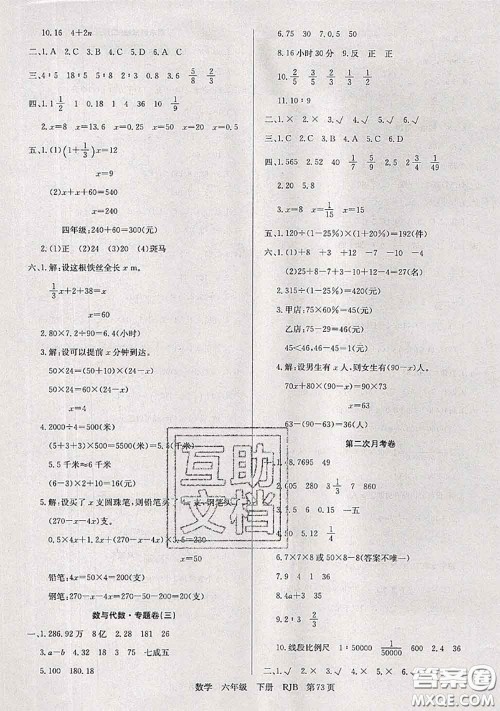 10.16　4+2n
二、1.A　2.C　3.C　4.B　5.A
三、4∶8　2∶4　6∶3　5/8　2/3
四、1.1 1/2　1　0.18　1　4　36　10　1/9
2.x=8　x=13.6　x=0.25　x=18　x=0.5
五、1.(1)(1+1/3)x=12
x=9
(2)x+x+60=540
x=240
四年级:240+60=300(元)
2.(1)正　(2)24　(3)20　(4)斑马
六、1.解:设这根铁丝全长 x m。
1/3x+2+38=x
x=60
2.80×7.2÷90=6.4(小时)
3.解:设可以提前 x 分钟到达。
50×24=(50+10)×(24-x)
50×24=60×(24-x)
x=4
4.2000÷4=500(米)
(5+3+3)×500=5500(米)
5.5千米≈6千米
5.5千米
5.解:设买了 x 支圆珠笔,则铅笔买了
(270-x-4x)
0.5×4x+
x=50
铅笔:4x=50×4=200(支)
钢笔:270-50-200=20(支)
数与代数·专题卷(三)
一、1.286.92万　8亿　2.28　181　26
3.a-b　4.45　36　7.2　七成五
5.100　180.18
6.75　30　7.25
8.16小时30分　9.反　正　正
11.10∶9
二、1.×　2.√　3.×　4.√　5.√
三、1.C　2.A　3.C　4.B　5.B
四、1.565　2.52　40　1/7　5/9　2.4　3　1/5
2.20　5.8
3.x=8　x=1/15　x=15
五、1.120÷(1-25%)×(1+20%)=192(件)
六、1.(1)+8　+3　-12　+6　-1　-4
(2)(8+3-12+6-1-4)+27=27(名)
2.315÷(1-30%)=450(元)
3.甲店:75×60%=45(元)
乙店:75-29=46(元)
45<46　46-45=1(元)
4.解:设男生有 x 人,则女生有(90-x)人。
70x+80×(90-x)=90×73
x=63
第二次月考卷
一、1.8.7695　49
2.605　280　3　15　一五
4.50　5.12
6.7×7×8或5×5×8(答案不唯一)
7.9　4　4　36　8.21
9.2∶3
10.线段比例尺　1∶50000　1/50000　600
二、1.√　2.×　3.×　4.√　5.×
数学　六年级　下册　RJB　第73页
互助
文档